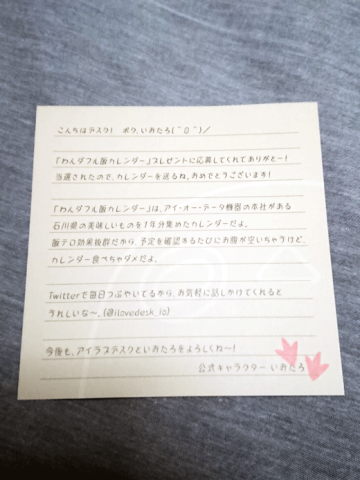 こんちはデスク!　ボク、いおたろ(^0^)/
「わんダフル飯カレンダー」プレゼントに応募してくれてありがとー!
当選されたので、カレンダーを送るね。おめでとうございます!
「わんダフル飯カレンダー」は、アイ・オー・データ機器の本社がある
石川県の美味しいものを1年分集めたカレンダーだよ。
飯テロ効果抜群だから、予定を確認するたびにお腹が空いちゃうけど、
カレンダー食べちゃダメだよ。
Twitterで毎日つぶやいてるから、お気軽に話しかけてくれると
うれしいな～。(@ilovedesk_io)
今後も、アイラブデスクといおたろをよろしくね～!
公式キャラクター いおたろ